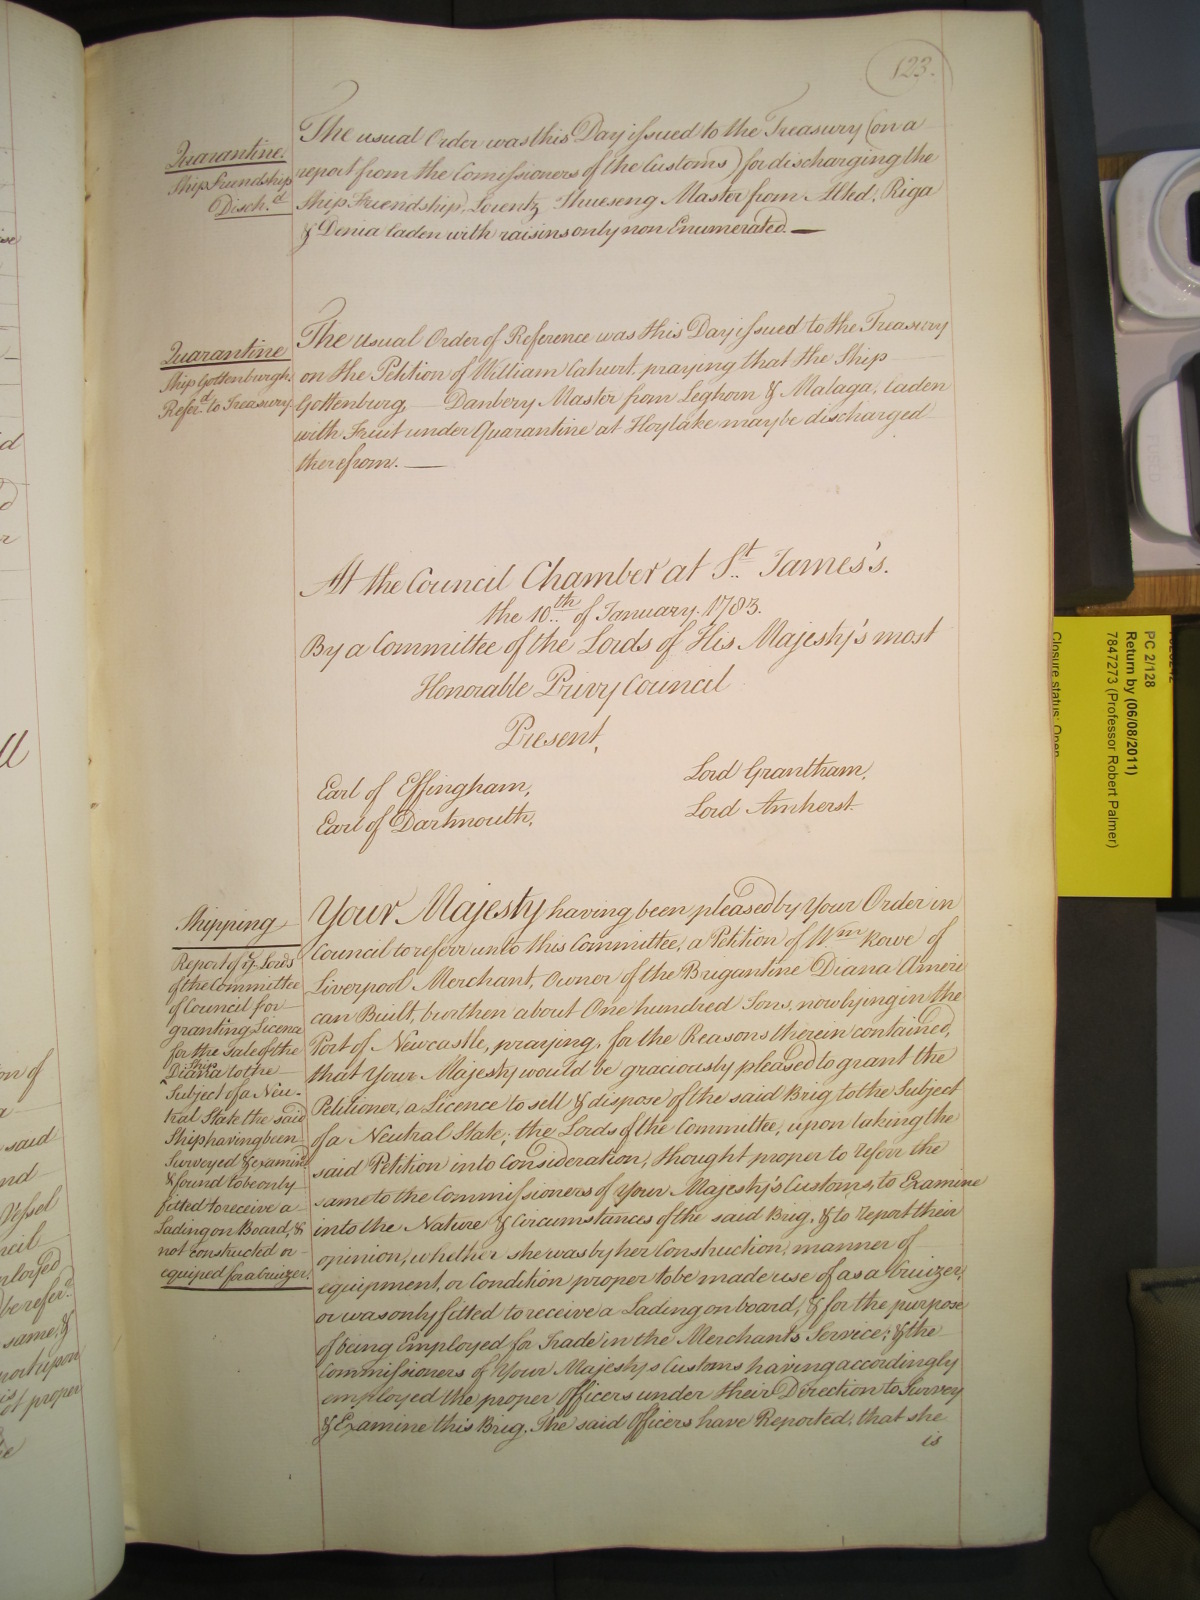 123.
Quarantine.
Ship Friendship
Disch.d
The usual Order was this Day issued to the Treasury (on a
report from the Comissioners of the Customs) for discharging the
Ship Friendship, Lorentz Master from Riga
& Denia laden with raisins only non Enumerated. —
Quarantine
Ship Gottenburgh.
Refer.d to Treasury
The usual Order of Reference was this Day issued to the Treasury
on the Petition of William praying that the Ship
Gottenburg, — Danbery Master from Leghorn & Malaga, laden
with Fruit under Quarantine at Hoylake may be discharged
therefrom. —
At the Council Chamber at S.t James's.
the 10.th of January. 1783.
By a Committee of the Lords of His Majesty's most
Honorable Privy Council
Present,
Earl of Effingham,
Earl of Dartmouth,
Lord Grantham,
Lord Amherst
Shipping
Report of ye Lords
of the Committee
of Council for
granting Licence
for the Sale of the
Ship
^ Diana to the
Subject of a Neu-
tral State the said
Ship having been
Surveyed & examin'd
& found to be only
fitted to receive a
Lading on Board, &
not constructed or
equiped for a Cruizer.
Your Majesty having been pleased by Your Order in
Council to referr unto this Committee, a Petition of Wm Rowe of
Liverpool Merchant, Owner of the Brigantine Diana Ameri
can Built, burthen about One hundred Tons, now lying in the
Port of Newcastle, praying, for the Reasons therein contained,
that Your Majesty would be graciously pleased to grant the
Petitioner, a Licence to sell & dispose of the said Brig to the Subject
of a Neutral State; the Lords of the Committee, upon taking the
said Petition into Consideration, thought proper to referr the
same to the Commissioners of Your Majesty's Customs, to Examine
into the Nature & Circumstances of the said Brig, & to report their
opinion, whether she was by her Construction, manner of
equipment, or Condition proper to be made use of as a Cruizer,
or was only fitted to receive a Lading on board, & for the purpose
of being Employed for Trade in the Merchants Service; & the
Commissioners of Your Majestys Customs having accordingly
employed the proper Officers under their Direction to Survey
& Examine this Brig, The said Officers have Reported, that she
is
PC 2/128
Return by (06/08/2011)
7847273 (Professor Robert Palmer)
Closure status: Open